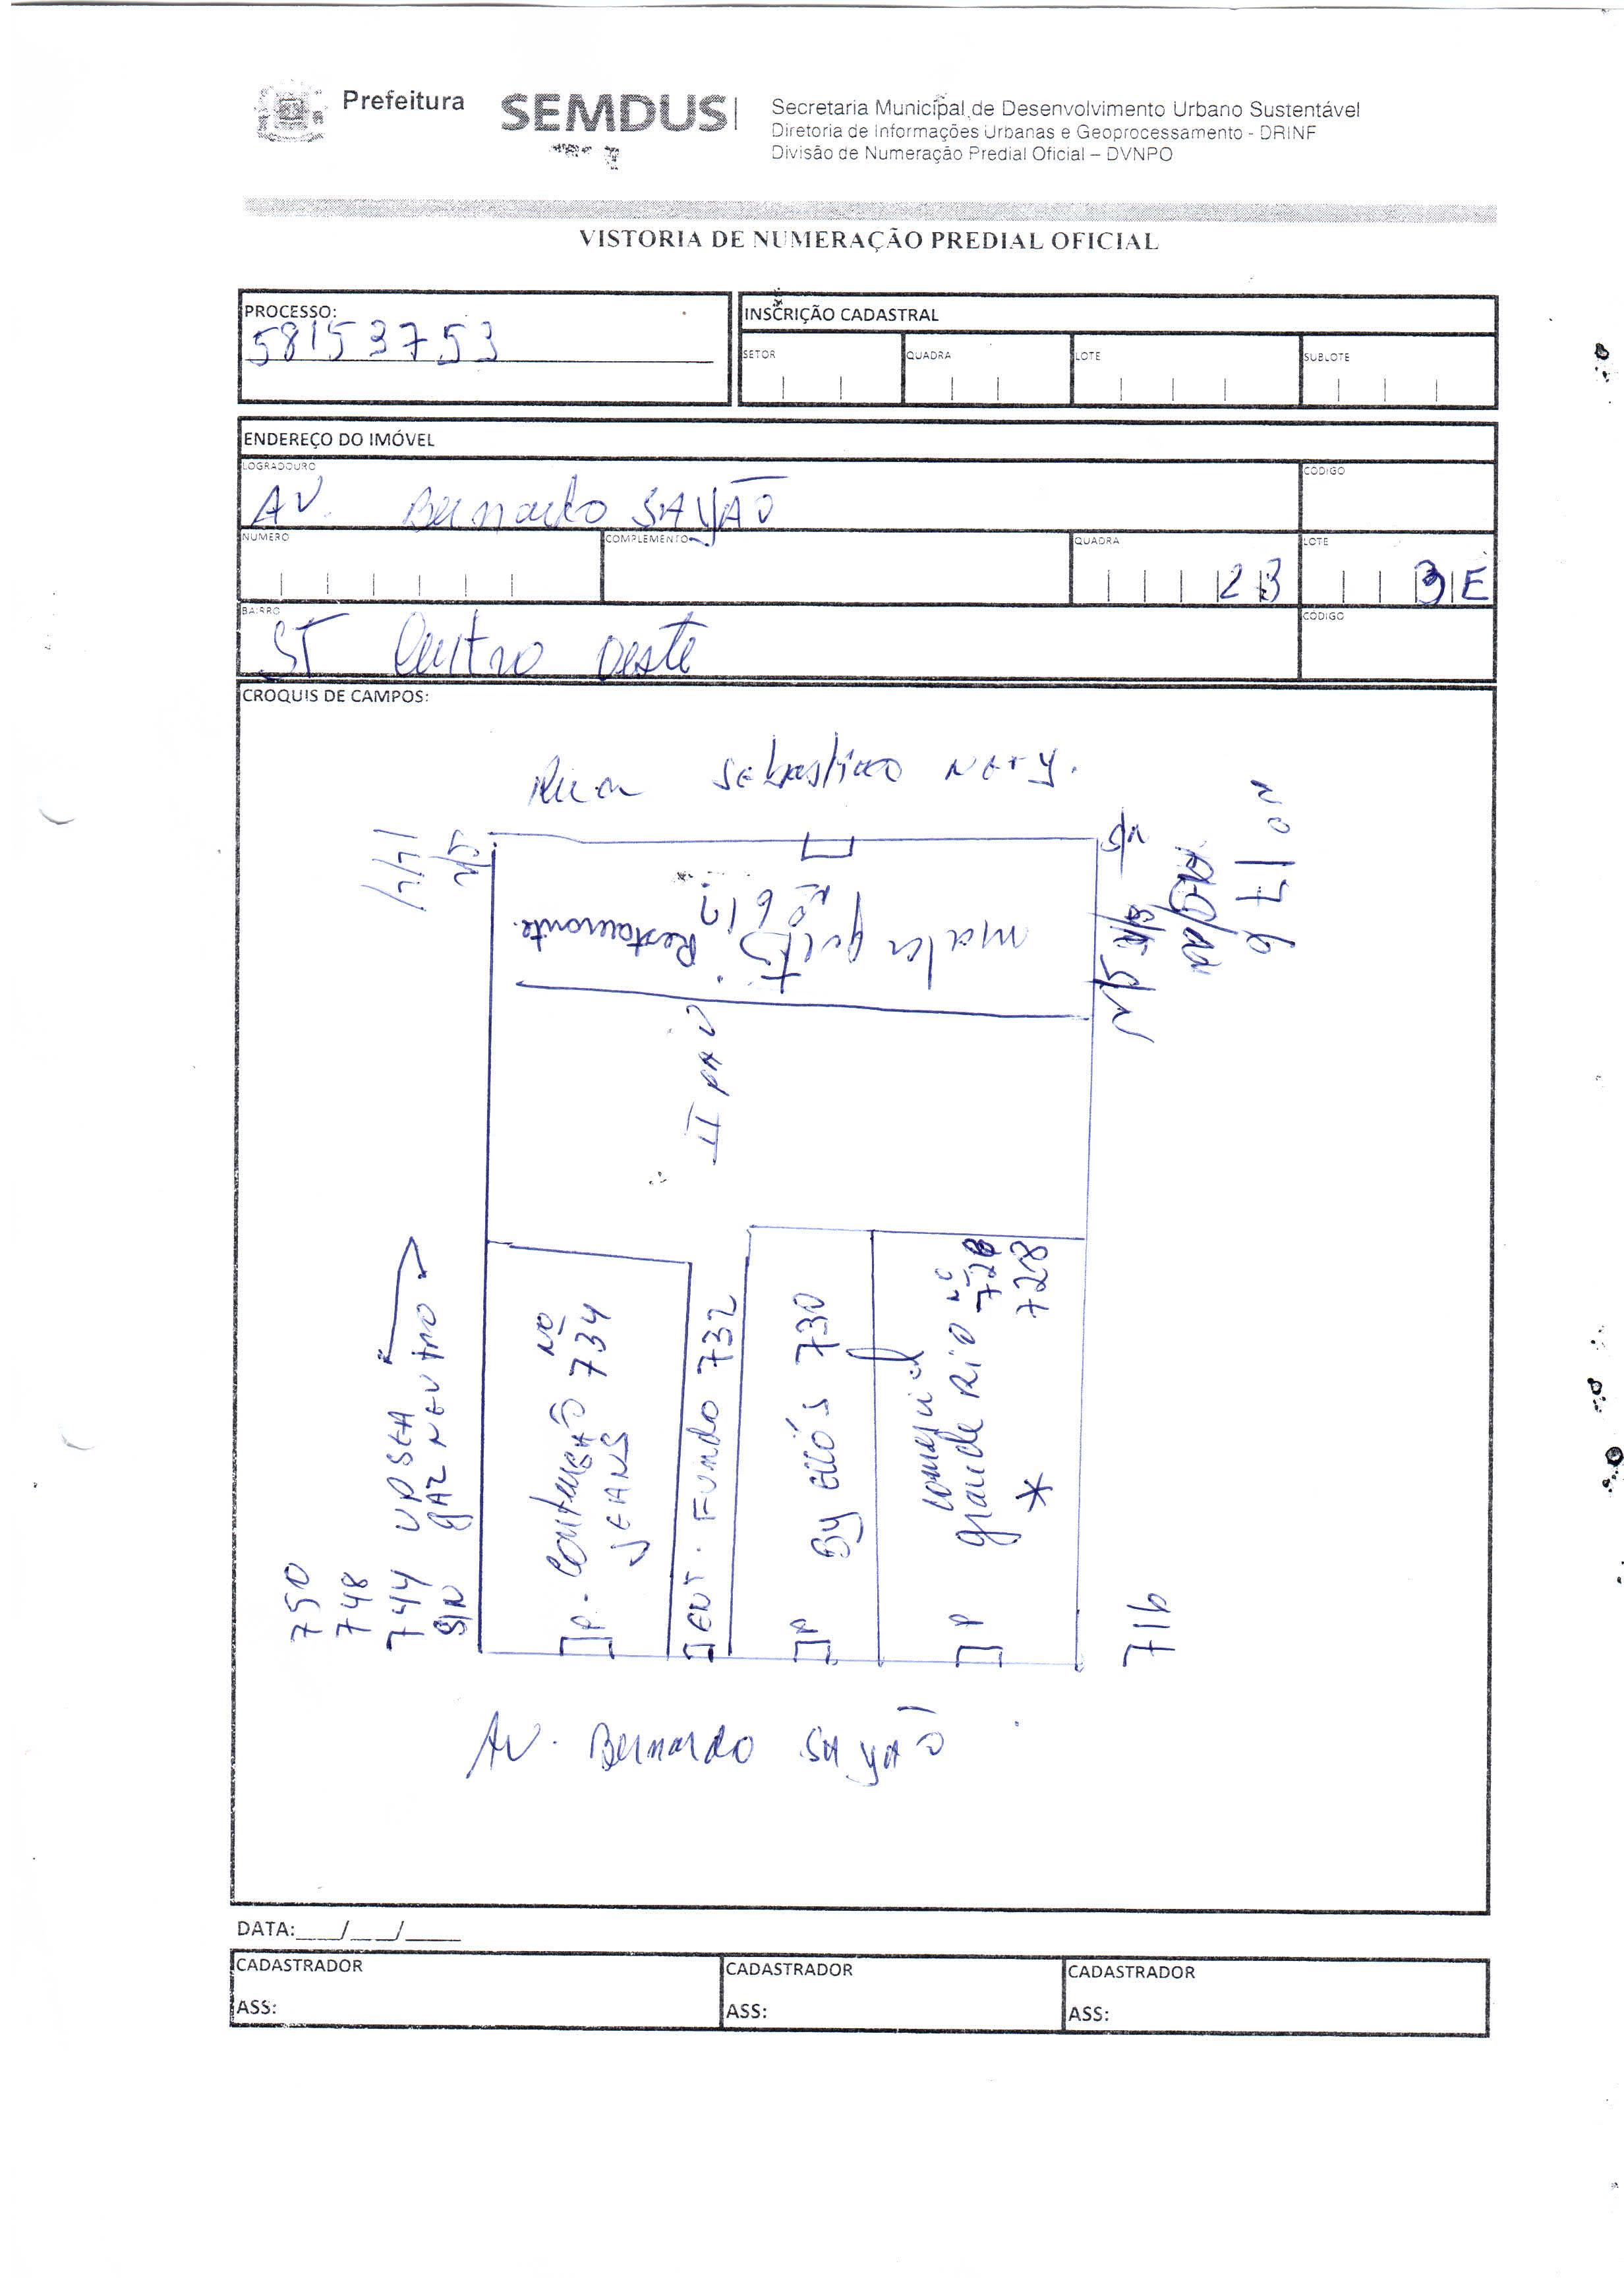 Prefeitura
SEMDUS
Secretaria Municipal de Desenvolvimento Urbano Sustentável
Diretoria de Informações Urbanas e Geoprocessamento - DRINF
Divisão de Numeração Predial Oficial – DVNPO
VISTORIA DE NUMERAÇÃO PREDIAL OFICIAL
PROCESSO:
58153753
INSCRIÇÃO CADASTRAL
SETOR
QUADRA
LOTE
SUBLOTE
ENDEREÇO DO IMÓVEL
LOGRADOURO
AV. Bernardo SAYÃO
CÓDIGO
NÚMERO
COMPLEMENTO
QUADRA
23
LOTE
3E
BAIRRO
ST Centro oeste
CÓDIGO
CROQUIS DE CAMPOS:
Rua Sebastiao Nery.
Restaurante.
Nº 617
II PAV
Nº 734
JEANS
ENT. FUNDO 732
By 730
P
grande RIO Nº
728
*
UPSEA
GAZ NEUTRO
750
748
744
S/N
716
AV. Bernardo SAYÃO
DATA:___/___/____
CADASTRADOR
ASS:
CADASTRADOR
ASS:
CADASTRADOR
ASS: